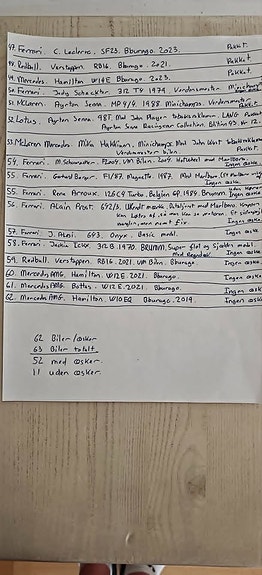 47. Ferrari. C. Leclerc. SF23. Bburago. 2023. Pakket.
48. Redbull. Verstappen. RB16. Bburago. 2021. Pakket.
49. Mercedes. Hamilton W14E Bburago. 2023. Pakket.
50. Ferrari. Jody Scheckter. 312 T4 1979. Verdensmester.
51. McLaren Ayrton Senna. MP4/4. 1988. Minichamps. Verdensmester
52. Lotus. Ayrton Senna. 98T. Med John Player tobaksreklamen. LANG Pakket
Ayrton Senna Racingcar Collection. Edition 43. Nr. 12.
53. McLaren Mercedes Mika Hakkinen. Minichamps. Med John West tobaksreklame
Verdensmester bilen.
54. Ferrari. M. Schumacher. F2004. VM Bilen. 2004. Hotwheels med Marlboro. Ingen æske
55. Ferrari. Gerhard Berger. F1/87. Magnette. 1987. Med Marlboro
Ingen æske
55. Ferrari. Rene Arnoux. 126C4 Turbo. Belgien GP. 1984. Brumm. Ingen æske
56. Ferrari. Alain Prost. 642/3. Med Marlboro.
Ingen æske
57. Ferrari J. Alesi. 643. Onyx. Basic model. Ingen æske
58. Ferrari. Jackie Ickx. 312 B. 1970. Brumm. Super flot og sjælden model.
Ingen æske
59. Redbull. Verstappen. RB16. 2021. VM Bilen. Bburago Ingen æske
60. Mercedes AMG. Hamilton. W12E. 2021. Bburago. Ingen æske
61. Mercedes AMG. Bottas. W12E. 2021. Bburago. Ingen æske
62. Mercedes AMG. Hamilton. W10EQ Bburago. 2019. Ingen æske
62 Biler/æsker
63 Biler totalt.
52 med æsker.
11 uden æsker.